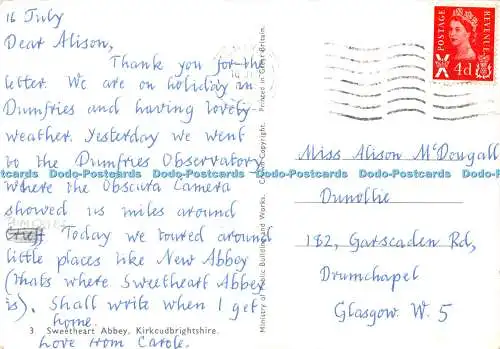 16 July
Dear Alison,
Thank you for the
letter. We are on holiday in
Dumfries and having lovely
weather. Yesterday we went
to the Dumfries Observatory
where the Obscura Camera
showed us miles around
Today we toured around
little places like New Abbey
(thats where Sweetheart Abbey
is). Shall write when I get
home.
3 Sweetheart Abbey, Kirkcudbrightshire.
Love from Carole.
Ministry of Public Building and Works. Crown Copyright. Printed in Great Britain.
POSTAGE
REVENUE
4d
Miss Alison McDougall
Dunollie
182, Garscaden Rd,
Drumchapel
Glasgow W.5
Dodo-Postcards Dodo-Postcards Dodo-Postcards Dodo-Postcards